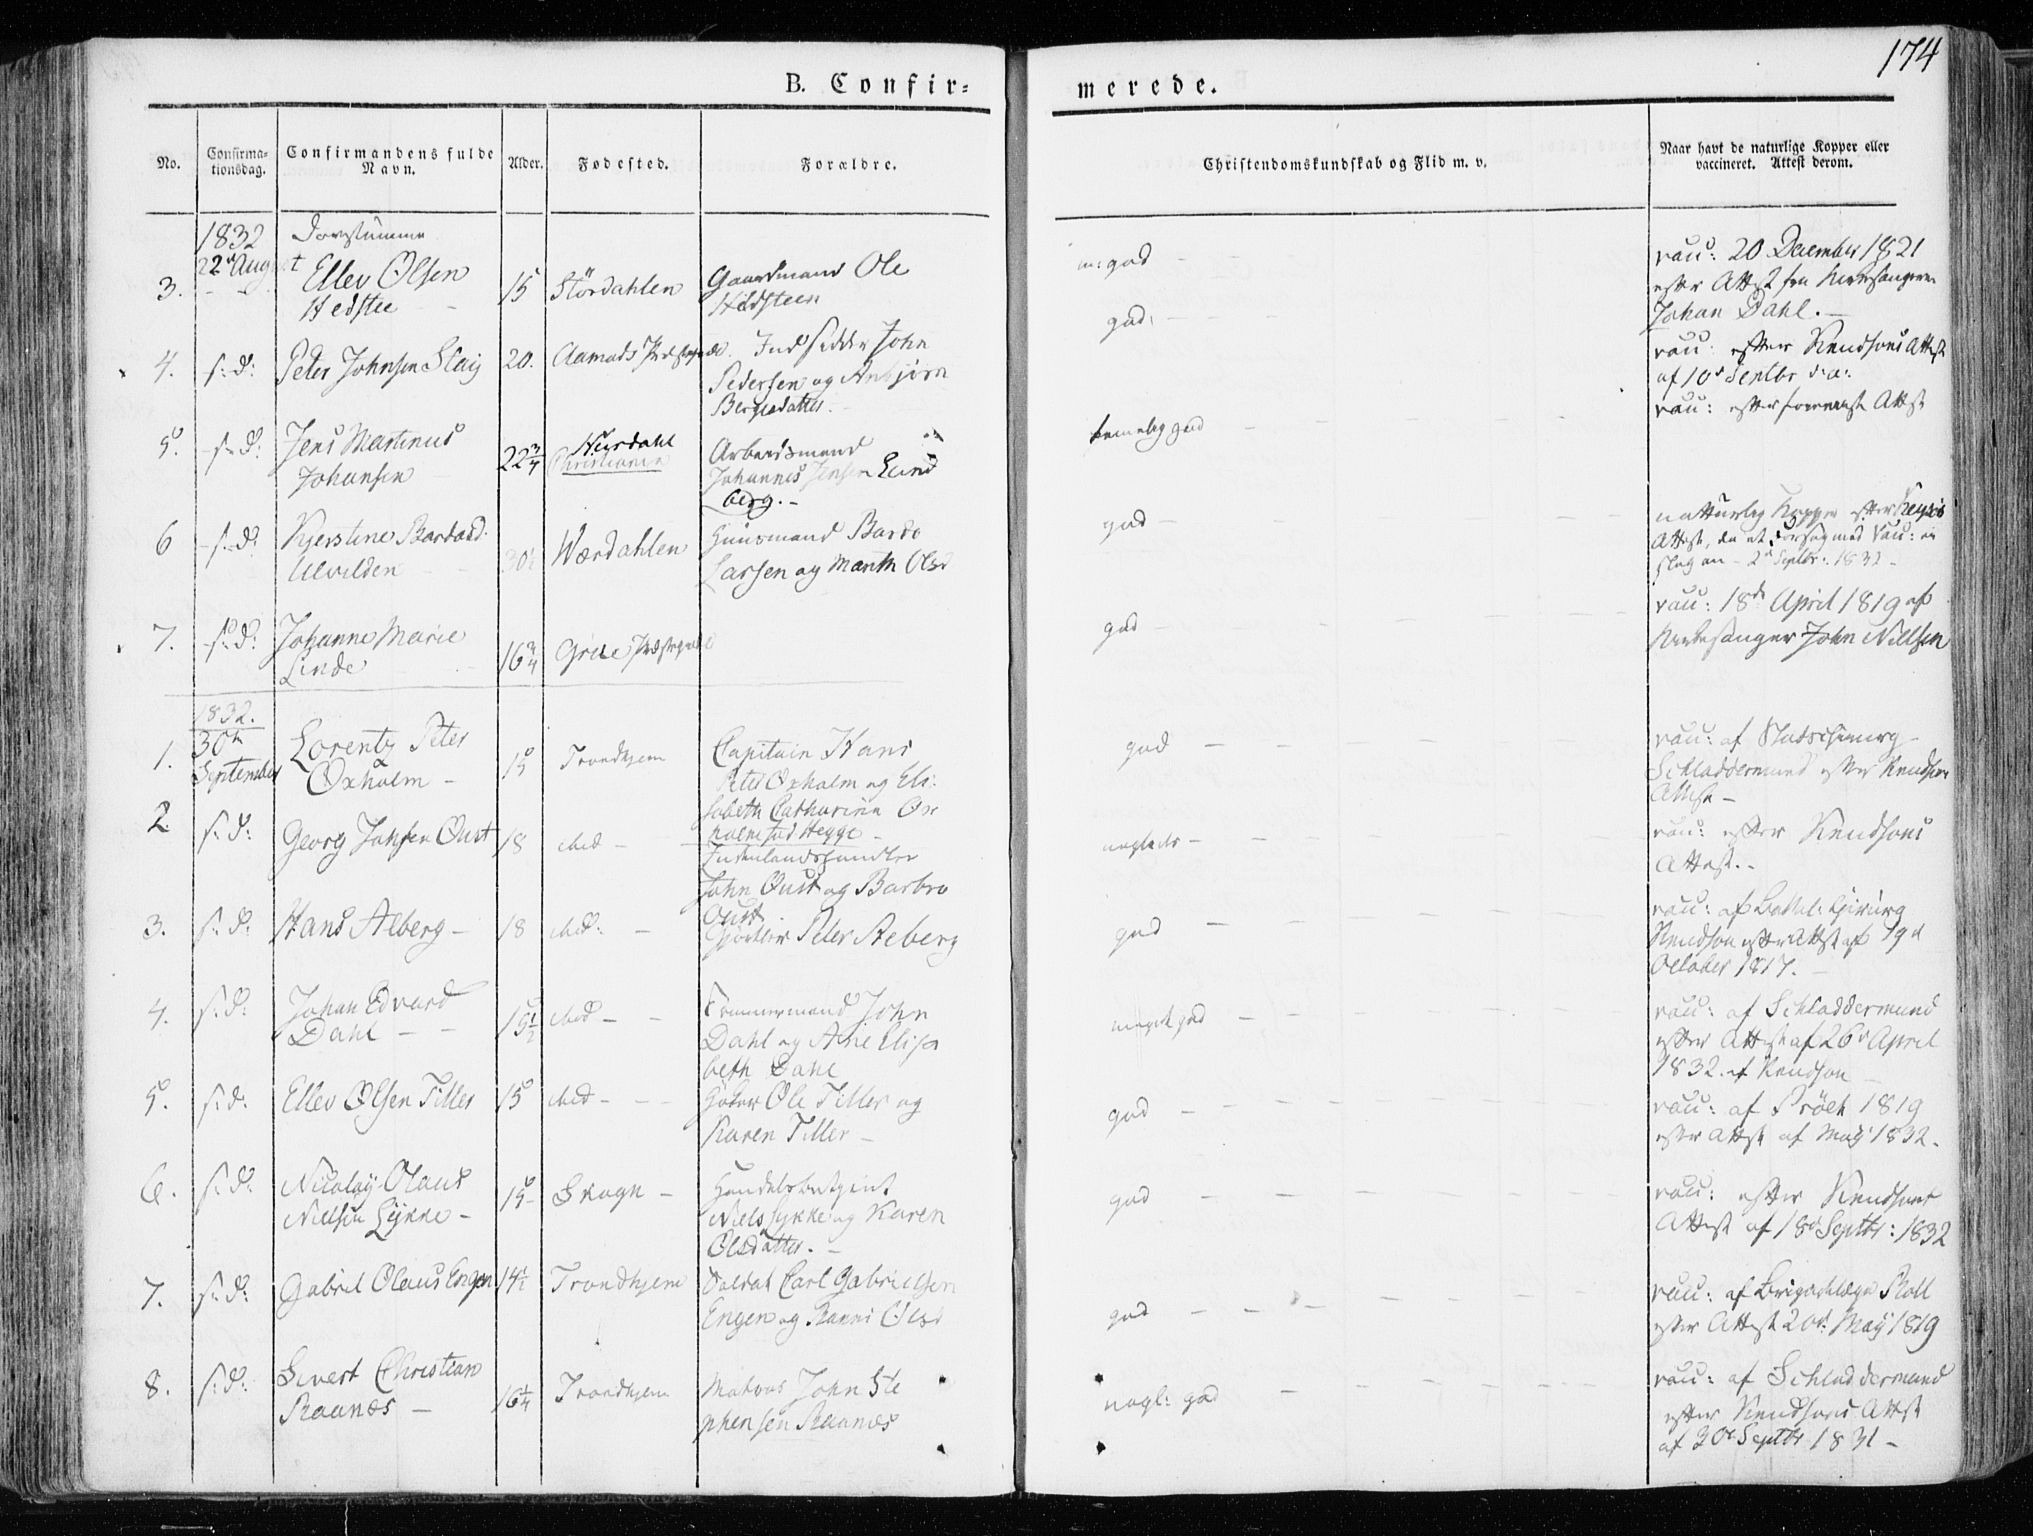 174
B. Confir=
merede.
No.
Confirma=
tionsdag.
Confirmandens fulde
Navn.
Alder.
Fødested.
Forældre.
Christendomskundskab og Flid m. v.
Naar havt de naturlige Kopper eller
vaccineret. Attest derom.
1832
22d August
Døvstumme
3.
Ellev Olsen
Hedstee
15
Størdahlen
Gaardmand Ole
Hildsteen
m: god
vacc: 20 December 1821
efter Attest fra Kirkesangeren
Johan Dahl.
4.
s: d:
Peter Johnsen Slaij
20.
Aamods Præstegield.
Indsidder John
Pedersen og Anbjørn
Bergesdatter.
god
vacc: efter Knudsons Attest
af 10d Septbr d. a:
5.
s: d:
Jens Martinus
Johansen
22 3/4
Hurdahl
Christiania
Arbeidsmand
Johannes Jensen Lund
berg.
temelig god
vacc: efter foreneste Attest
6
s: d:
Kjerstine Bardosd.
Ulvilden
30 1/2
Wærdahlen
Huusmand Bardo
Larsen og Marith Olsd
god
natturlig Kopper efter
Attest, da et Forsøg med Vacc: ei
slog an 2d Septbr: 1832
7.
s: d:
Johanne Marie
Linde
16 3/4
Grue Præstegield
god
vacc: 18de April 1819 af
Kirkesanger John Nillsen
1832.
30te
September
1.
Lorentz Peter
Oxholm
15
Trondhjem
Capitain Hans
Peter Oxholm og Eli:
sabeth Catharina Ox
holm fød Hegge
god
vacc: af Stadschirurg
Schladdermund efter Knudsons
Attest
2.
s: d:
Georg Johsen Oust
18
ibid
Indenlandshandler
John Oust og Barbro
Oust
nogledes
vacc: efter Knudsons
Attest.
3.
s: d:
Hans Aeberg
18
ibid:
Gjørtler Peter Aeberg
god
vacc: af Battal: Chirurg
Knudson efter Attest af 19d
October 1817.
4.
s: d:
Johan Edvard
Dahl
15 1/2
ibid
Tømmermand John
Dahl og Ane Elisa
beth Dahl
meget god
vacc: af Schladdermund
efter Attest af 26d April
1832. af Knudson
5.
s: d:
Ellev Olsen Tiller
15
ibid
Ole Tiller og
Karen Tiller
god
vacc: af 1819
efter Attest af May 1832.
6.
s: d:
Nicolaij Olaus
Nillsen Lykke
15
Skogn
Handelsbetjent
Niels Lykke og Karen
Olsdatter.
god
vacc: efter Knudsons
Attest af 18d Septbr: 1832
7.
s: d:
Gabril Olaus Engen
14 1/2
Trondhjem
Soldat Carl Gabrielsen
Engen og Olsd
god
vacc: af Brigadelæge Moll
efter Attest 20d: May 1819
8.
s: d:
Sivert Christian
Raanæs
16 1/4
Trondhjem
Matros John Ste
phensen Raanæs
nogl: god
vacc: af Schladdermund
efter Knudsons Attst
af 30d Septbr 1831